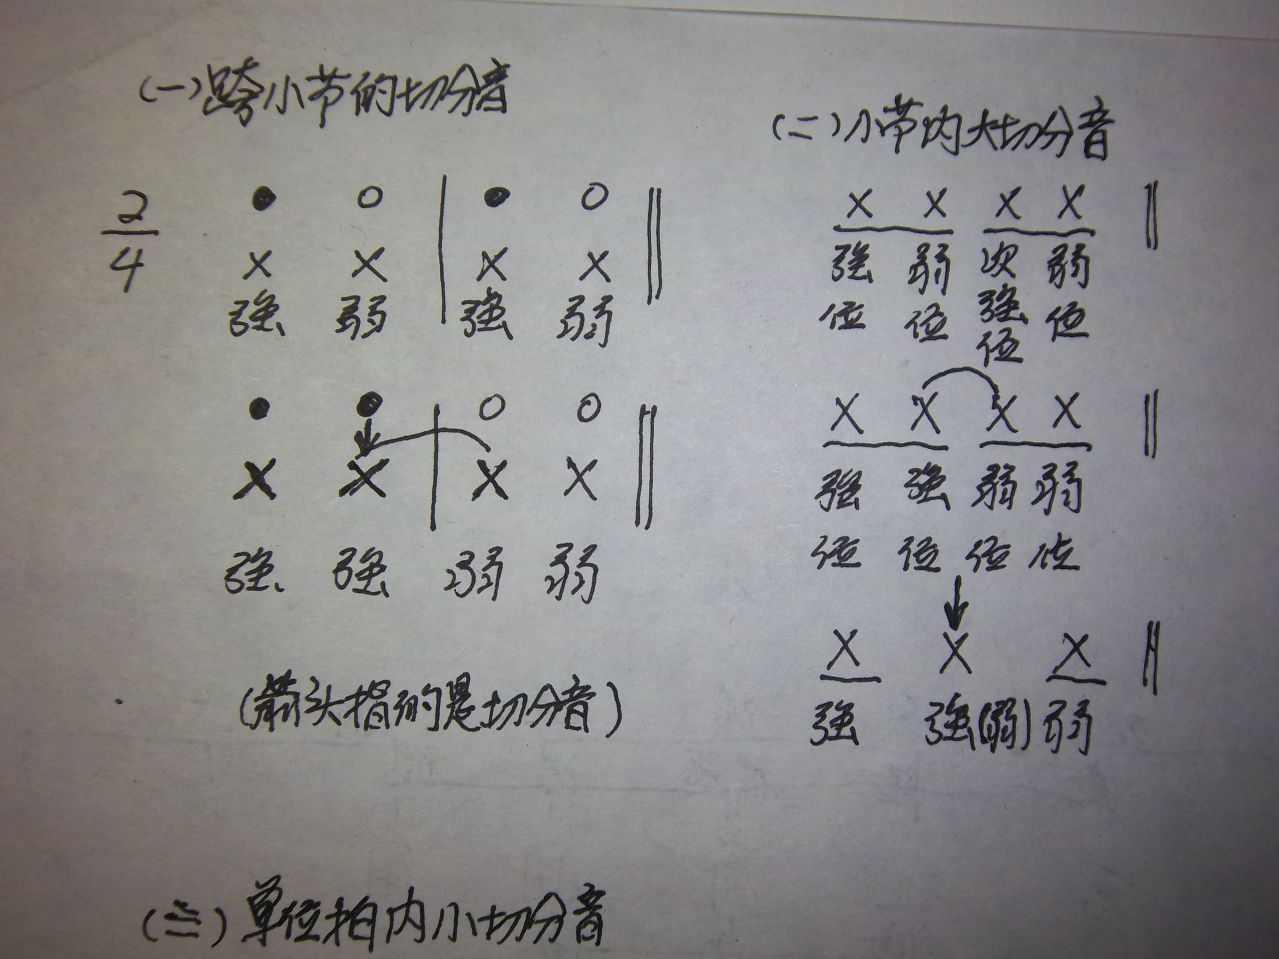 (一)跨小节的切分音
2/4 ● ○ | ● ○ ‖
X X X X
强 弱 强 弱
● ● | ○ ○ ‖
X X X X
强 强 弱 弱
(箭头指的是切分音)
(二)小节内大切分音
X X X X ‖
强 弱 次 弱
位 位 强 位
位
X X X X ‖
强 强 弱 弱
位 位 位 位
X X X ‖
强 强(弱) 弱
(三)单位拍内小切分音